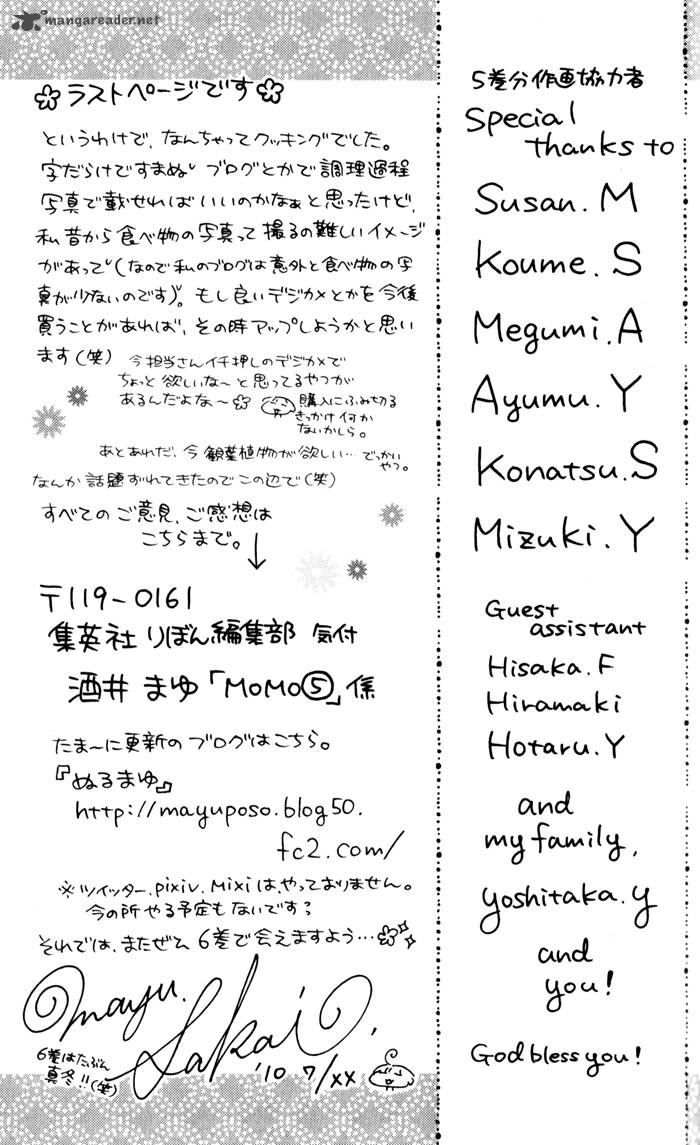 mangareader.net
ラストページです
というわけで、なんちゃってクッキングでした。
字だらけですまぬ ブログとかで調理過程
写真で載せればいいのかなぁと思ったけど、
私昔から食べ物の写真って撮るの難しいイメージ
があって(なので私のブログは意外と食べ物の写
真が少ないのです)。もし良いデジカメとかを今後
買うことがあれば、その時アップしようかと思い
ます(笑)
今担当さんイチ押しのデジカメで
ちょっと欲しいな〜と思ってるやつが
あるんだよな〜
購入にふみ切る
きっかけ何か
ないかしら。
あとあれだ、今観葉植物が欲しい…でっかい
やつ。
なんか話題ずれてきたのでこの辺で(笑)
すべてのご意見、ご感想は
こちらまで。↓
〒119-0161
集英社 りぼん編集部 気付
酒井 まゆ「MOMO⑤」係
たま〜に更新のブログはこちら。
『ぬるまゆ』
http://mayuposo.blog50.
fc2.com/
※ツイッター、pixiv、Mixiは、やっておりません。
今の所やる予定もないです？
それでは、またぜひ 6巻で会えますよう…
mayu.
Sakai.
6巻はたぶん
真冬!!(笑)
'10 7/XX
5巻分作画協力者
Special
thanks to
Susan. M
Koume. S
Megumi. A
Ayumu. Y
Konatsu. S
Mizuki. Y
Guest
assistant
Hisaka. F
Hiramaki
Hotaru. Y
and
my family,
yoshitaka. y
and
you!
God bless you!